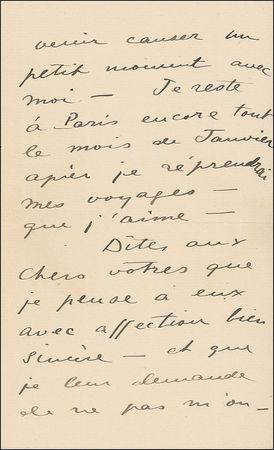 venir causer un
petit moment avec
moi — Je reste
à Paris encore tout
le mois de Janvier
après je réprendrai
mes voyages —
que j'aime —
Dites aux
chers vôtres que
je pense à eux
avec affection bien
sincère — et que
je leur demande
de ne pas m'ou-